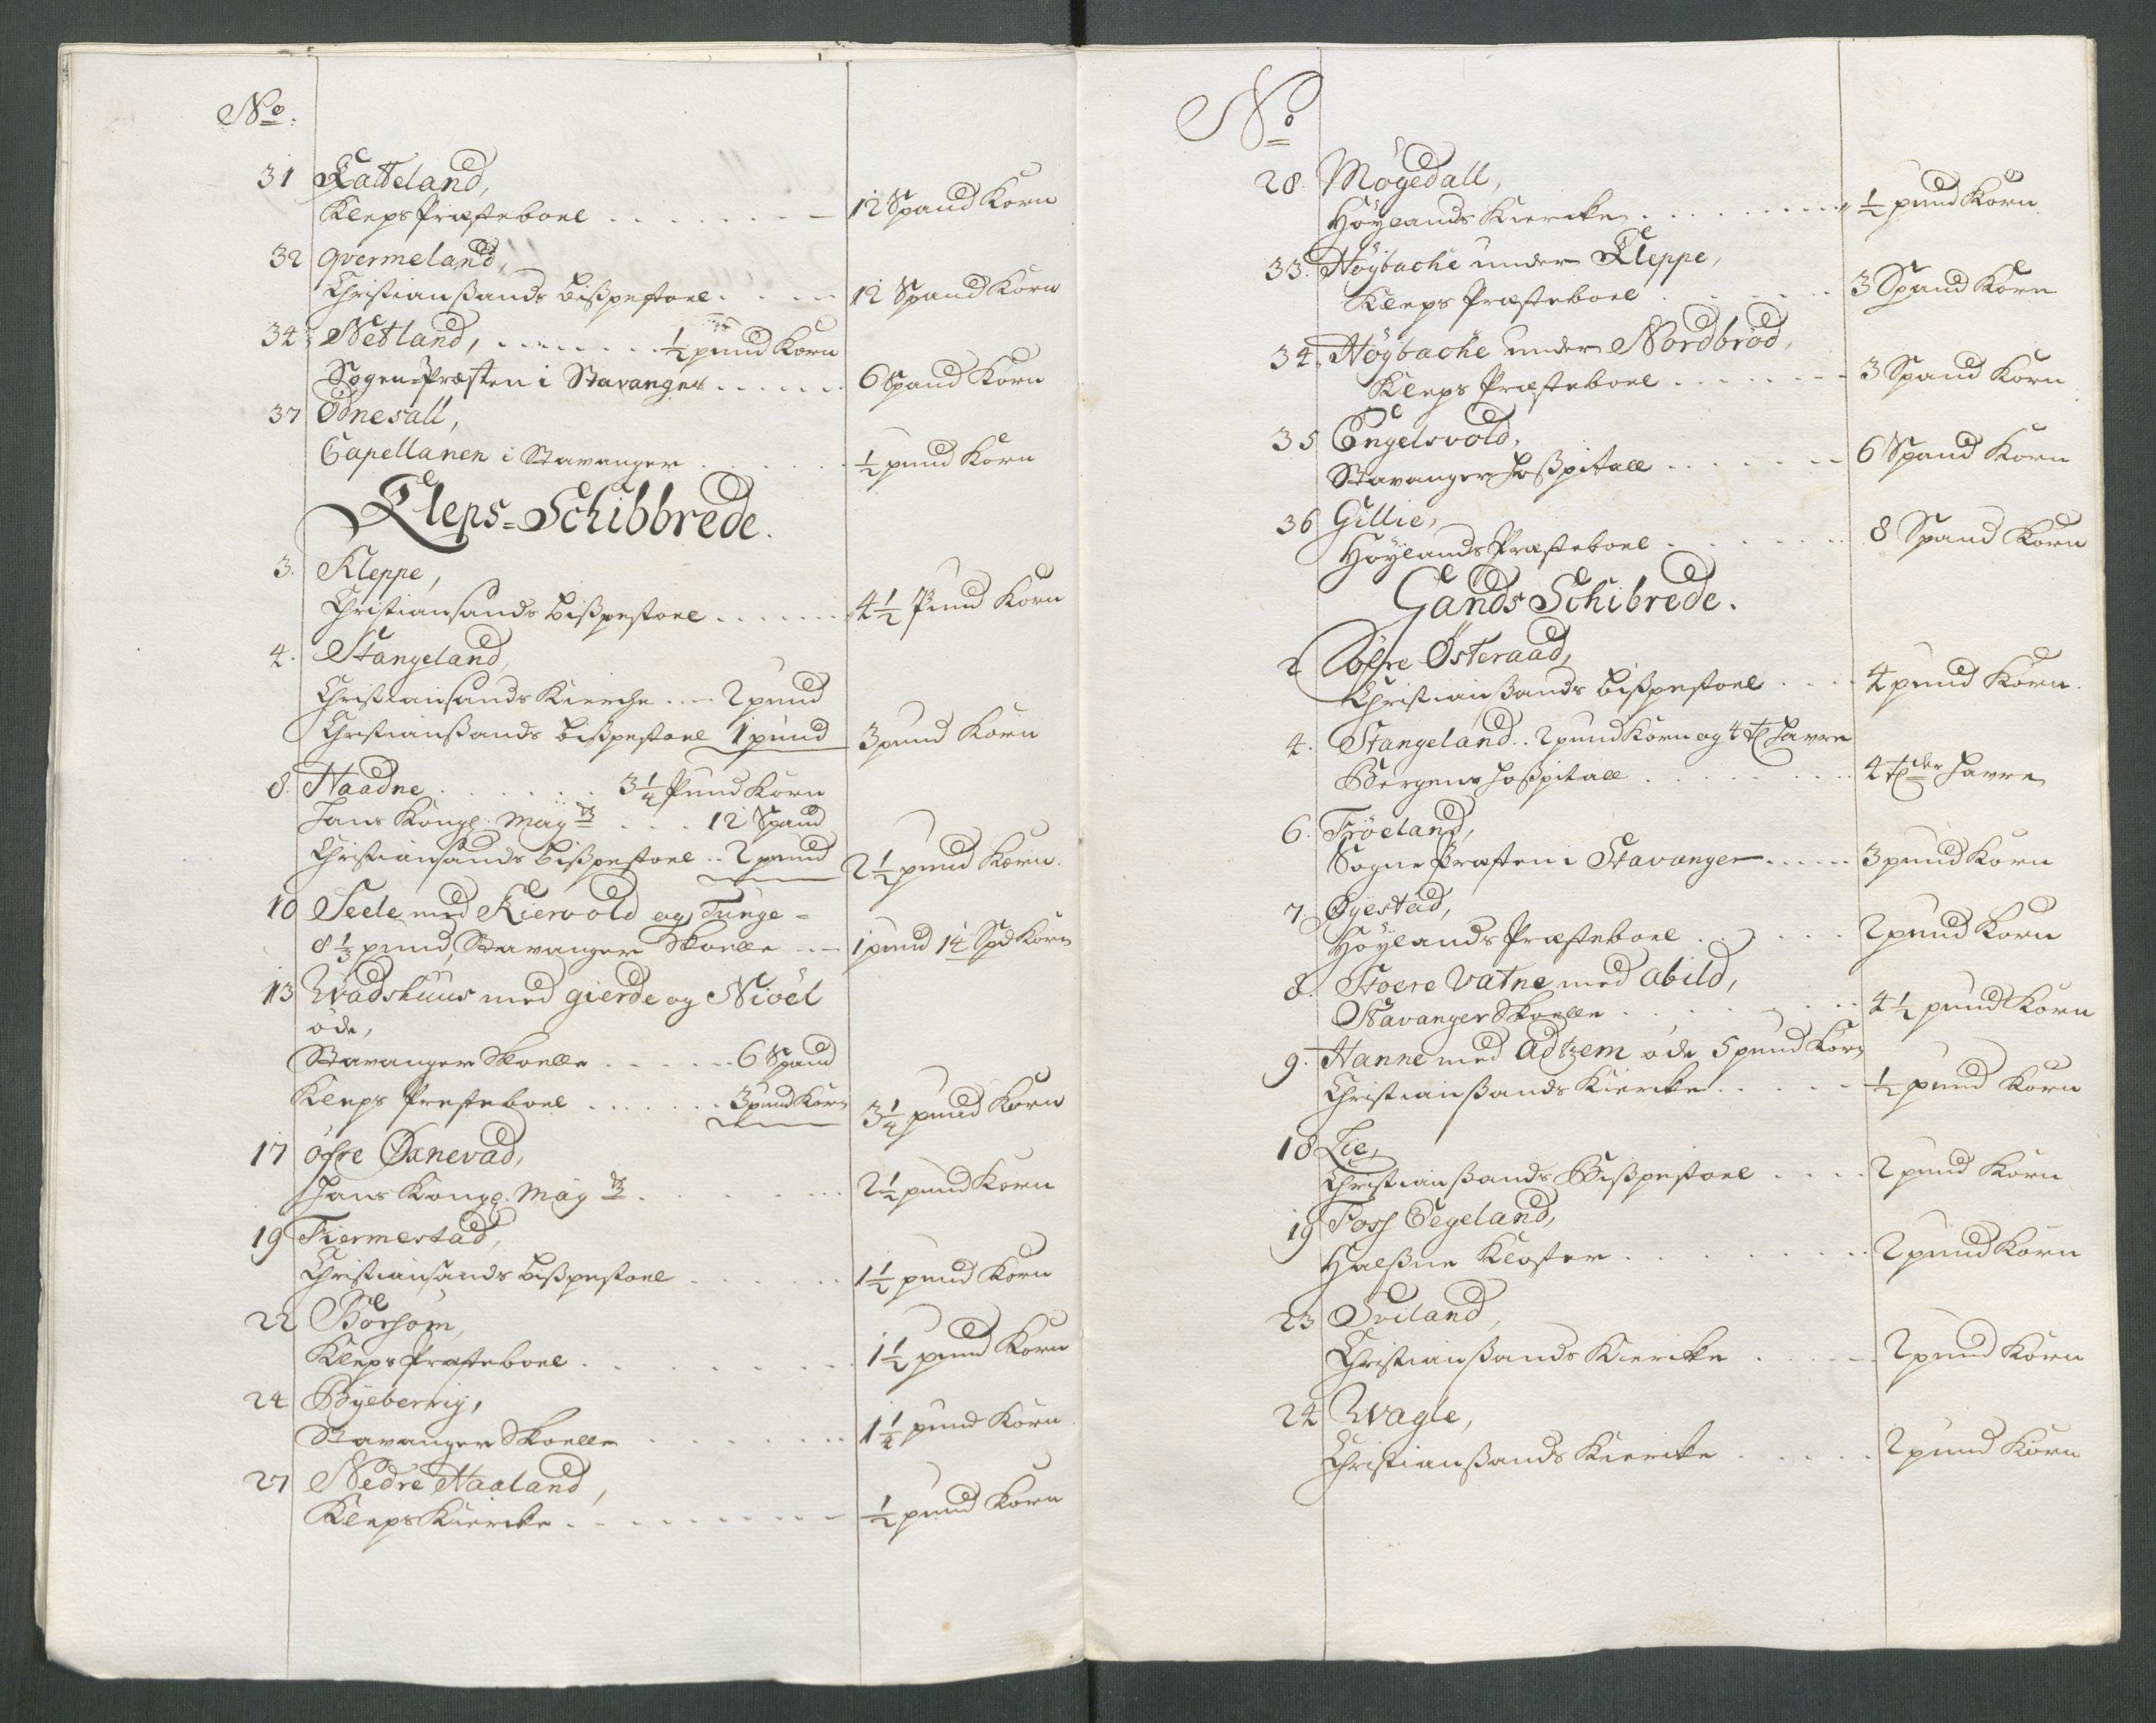 No:
31 Katteland,
Kleps Præsteboel . . . . . . . . 12 Spand Korn
32 Qvermeland,
Christianßands Bißpestoel . . . . 12 Spand Korn
34 Netland, . . . . . . ½ pund Korn
Sogne-Præsten i Stavanger . . . . . . 6 Spand Korn
37 Ödnesall,
Capellanen i Stavanger . . . . . . ½ pund Korn
Kleps-Schibbrede.
3. Kleppe,
Christiansands Bißpestoel . . . . . . 4½ Pund Korn
4. Stangeland,
Christiansands Kierche . . . 2 pund
Christianßands Bißpestoel 1 pund 3 pund Korn
8. Haadne . . . . . . 3¼ Pund Korn
Hans Kongl. Maÿts . . . 12 Spand
Christiansands Bißpestoel . . 2 pund 2½ pund Korn.
10 Seele med Kiervold og Tunge-
8⅓ pund, Stavanger Skoelle . . . 1 pund 14 Spd Korn
13 Wadshuus med gierde og Niöel
öde,
Stavanger Skoelle . . . . . 6 Spand
Kleps Presteboel . . . . . . 3 pund Korn 3¼ pund Korn
17 öfre Øxnevad,
Hans Kongl. Maÿts . . . . . . . 2½ pund Korn
19 Tiermestad,
Christiansands Bißpestoel . . . . . . 1½ pund Korn
22 Borsom,
Kleps Præsteboel . . . . . . . 1½ pund Korn
24 Byeberrig,
Stavanger Skoelle . . . . . . . 1¼ pund Korn
27 Nedre Haaland,
Kleps Kiercke . . . . . . . . . ½ pund Korn
No
28. Mögedall,
Höÿlands Kiercke . . . . . . . . . ½ pund Korn
33. Höybache under Kleppe,
Kleps Præsteboel . . . . . . 3 Spand Korn
34. Höybache under Nordbröd,
Kleps Præsteboel . . . . . . . 3 Spand Korn
35 Engelsvold,
Stavanger Hoßpitall . . . . . . . 6 Spand Korn
36 Gillie,
Höÿlands Præsteboel . . . . . . . 8 Spand Korn
Gands Schibrede.
2 Söfre Østeraad,
Christianßands Bißpestoel . . . . 4 pund Korn.
4. Stangeland . . 2 pund Korn og 4 tl Havre
Bergens Hoßpitall . . . . . . . . . 4 tlder Havre
6. Fröeland,
Sogne Præsten i Stavanger . . . . . 3 pund Korn
7. Øÿestad,
Höÿlands Præsteboel . . . . . . 2 pund Korn
8. Stoere Vatne med Abild,
Stavanger Skoelle . . . . . . . . 4½ pund Korn
9. Hanne med Adtzem öde 5 pund Korn
Christianßands Kiercke . . . . . ½ pund Korn
18 Lie,
Christianßands Bißpestoel . . . . 2 pund Korn
19 Foss Eegeland,
Halßne Kloster . . . . . . . . . 2 pund Korn
23 Sviland,
Christianßands Kiercke . . . . . 2 pund Korn
24 Wagle,
Christianßands Kiercke . . . . . 2 pund Korn